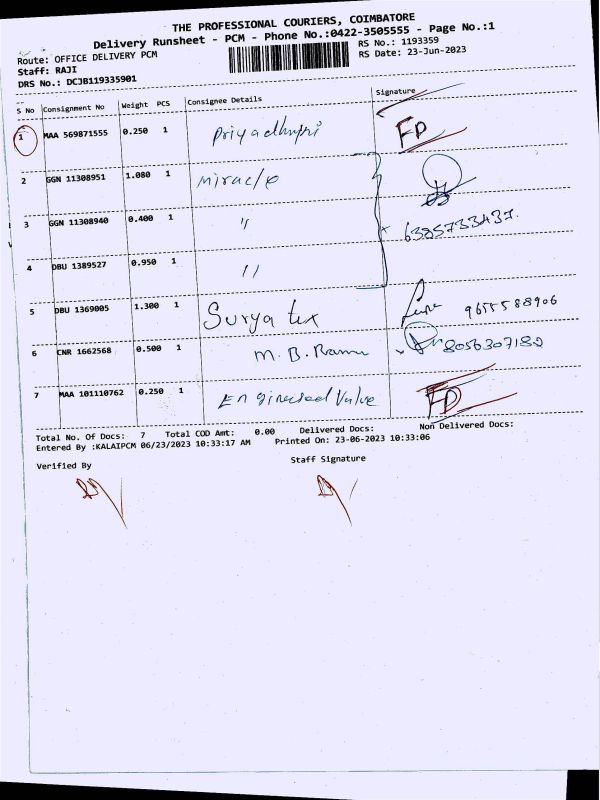 THE PROFESSIONAL COURIERS, COIMBATORE
Delivery Runsheet - PCM - Phone No.:0422-3505555 - Page No.:1
Route: OFFICE DELIVERY PCM
RS No.: 1193359
Staff: RAJI
RS Date: 23-Jun-2023
DRS No.: DCJB119335901
S No Consignment No Weight PCS Consignee Details Signature
1 MAA 569871555 0.250 1 FD
2 GGN 11308951 1.080 1 Miracle
3 GGN 11308940 0.400 1 " 6385733437.
4 DBU 1389527 0.950 1 "
5 DBU 1369005 1.300 1 Surya tex 9655588906
6 CNR 1662568 0.500 1 M. B. 8056307182
7 MAA 101110762 0.250 1 Value FD
Total No. Of Docs: 7 Total COD Amt: 0.00 Delivered Docs: Non Delivered Docs:
Entered By :KALAIPCM 06/23/2023 10:33:17 AM Printed On: 23-06-2023 10:33:06
Verified By Staff Signature